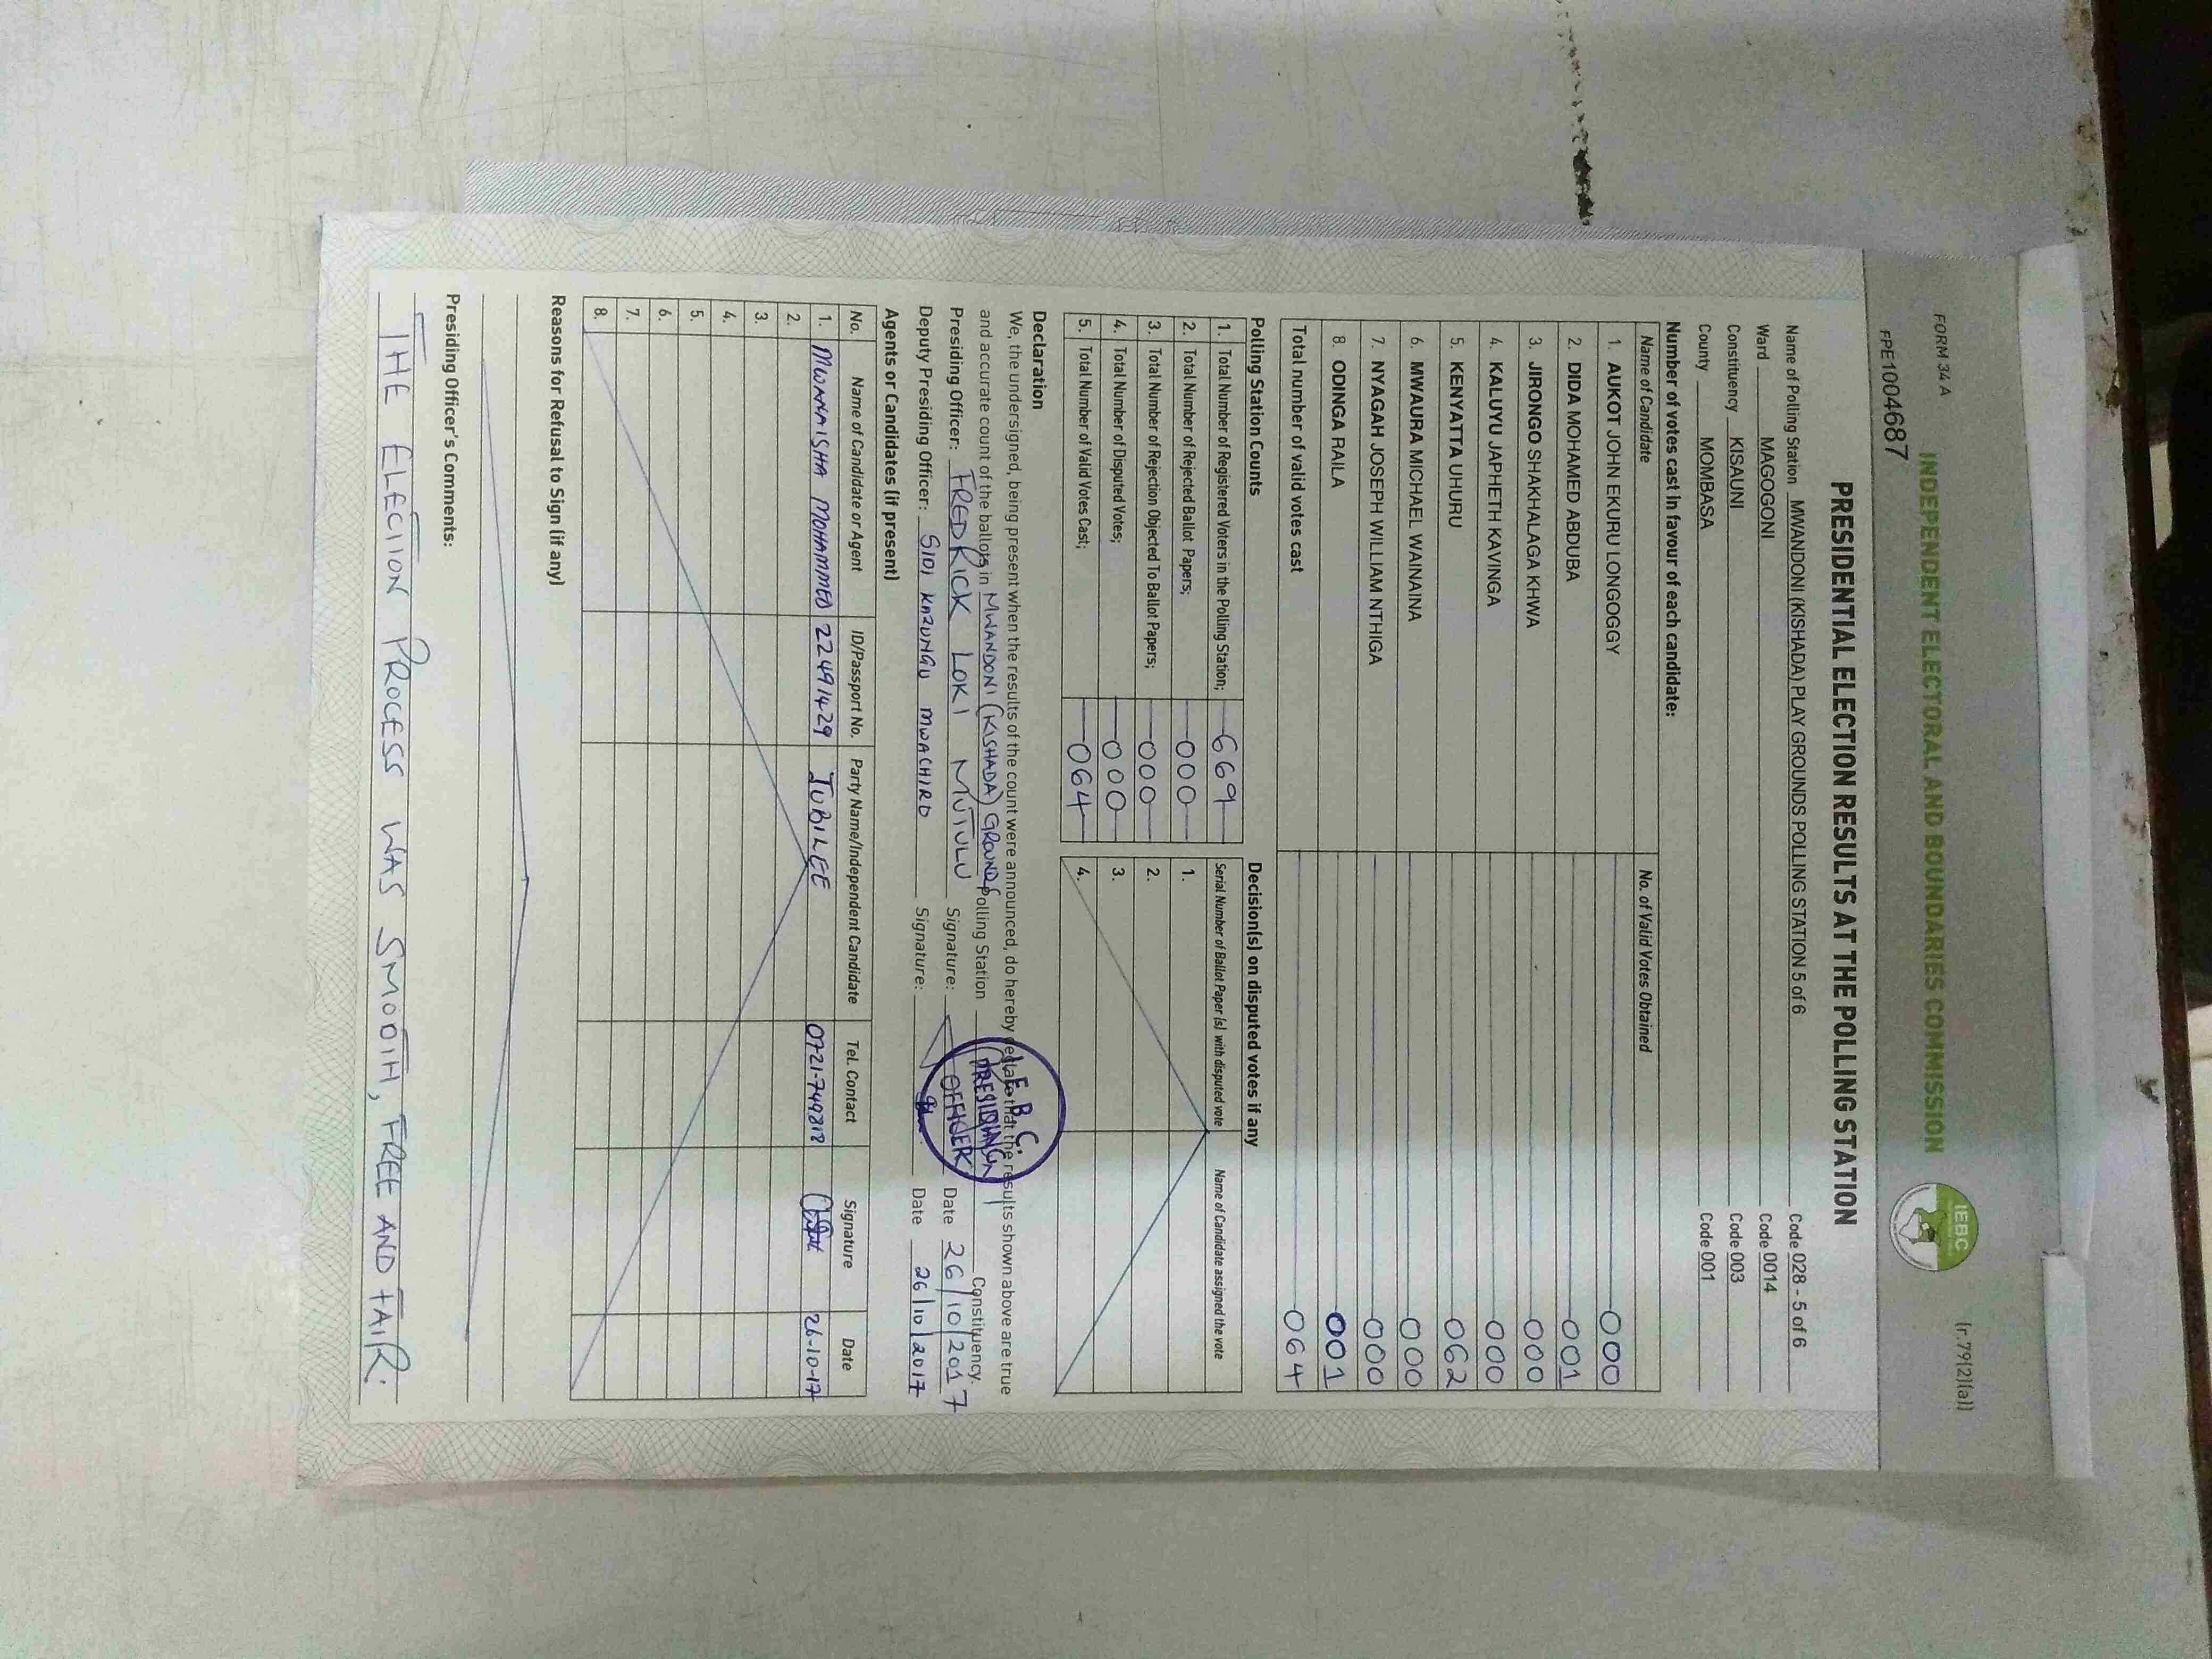 FORM 34 A
(r.79(2)(a))
INDEPENDENT ELECTORAL AND BOUNDARIES COMMISSION
IEBC
PRE1004687
PRESIDENTIAL ELECTION RESULTS AT THE POLLING STATION
Name of Polling Station MWANDONI (KISHADA) PLAY GROUNDS POLLING STATION 5 of 6 Code 028 - 5 of 6
Ward MAGOGONI Code 0014
Constituency KISAUNI Code 003
County MOMBASA Code 001
Number of votes cast in favour of each candidate:
Name of Candidate No. of Valid Votes Obtained
1. AUKOT JOHN EKURU LONGOGGY 000
2. DIDA MOHAMED ABDUBA 001
3. JIRONGO SHAKHALAGA KHWA 000
4. KALUYU JAPHETH KAVINGA 000
5. KENYATTA UHURU 062
6. MWAURA MICHAEL WAINAINA 000
7. NYAGAH JOSEPH WILLIAM NTHIGA 000
8. ODINGA RAILA 001
Total number of valid votes cast 064
Polling Station Counts
1. Total Number of Registered Voters in the Polling Station; 669
2. Total Number of Rejected Ballot Papers; 000
3. Total Number of Rejection Objected To Ballot Papers; 000
4. Total Number of Disputed Votes; 000
5. Total Number of Valid Votes Cast; 064
Decision(s) on disputed votes if any
Serial Number of Ballot Paper (s) with disputed vote Name of Candidate assigned the vote
1.
2.
3.
4.
Declaration
We, the undersigned, being present when the results of the count were announced, do hereby declare that the results shown above are true
and accurate count of the ballots in MWANDONI (KISHADA) GROUNDS Polling Station Constituency.
Presiding Officer: FREDRICK LOKI MUTULU Signature: Date 26/10/2017
Deputy Presiding Officer: SIDI KAZUNGU MWACHIRO Signature: Date 26/10/2017
E. B. C.
PRESIDING
OFFICER
Agents or Candidates (if present)
No. Name of Candidate or Agent ID/Passport No. Party Name/Independent Candidate Tel. Contact Signature Date
1. MWANAISHA MOHAMMED 22491429 JUBILEE 0721-749818 26-10-17
2.
3.
4.
5.
6.
7.
8.
Reasons for Refusal to Sign (if any)
Presiding Officer's Comments:
THE ELECTION PROCESS WAS SMOOTH, FREE AND FAIR.